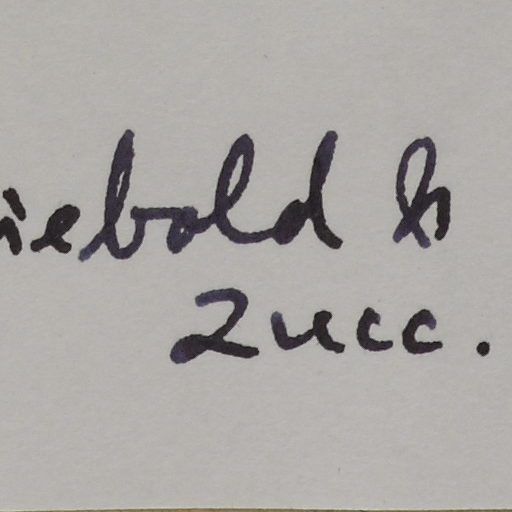 iebold &
Zucc.